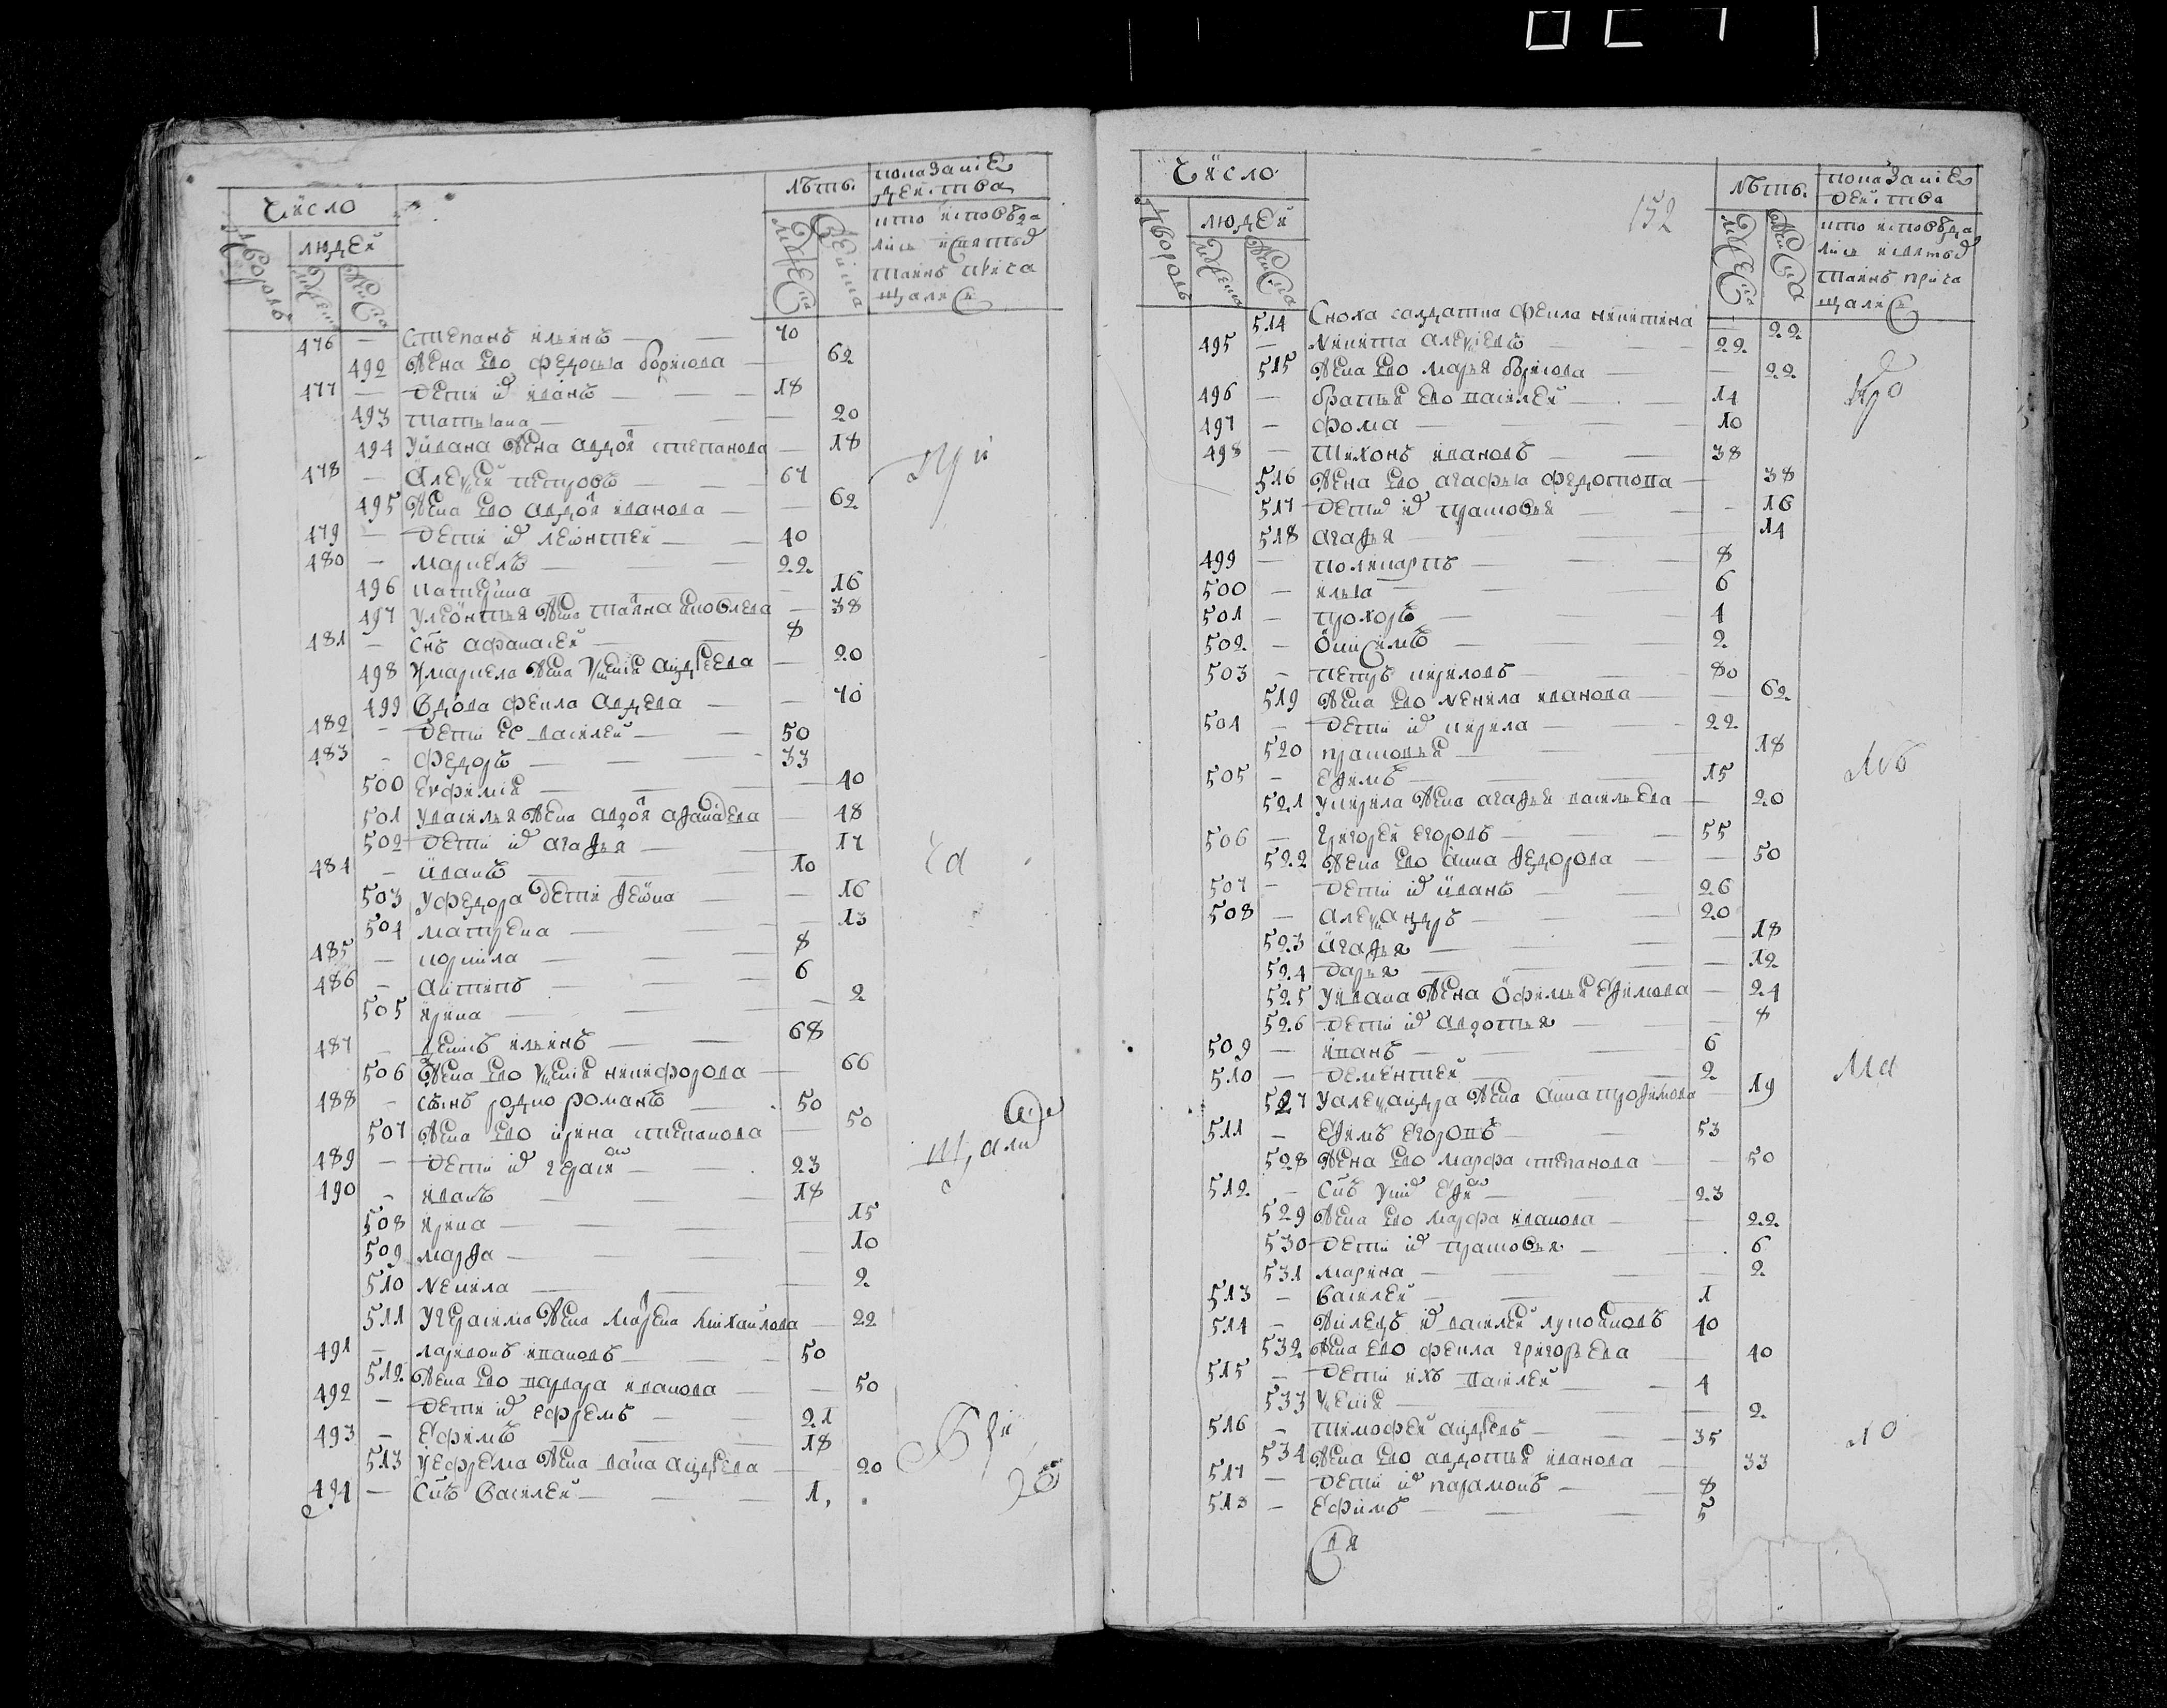 Число
людей
лѣтъ.
показание
действа
кто исповѣда
лись и святыхъ
таинъ прича
щались
дворовъ
мужеска
женска
мужеска
женска
476 — Степанъ ильинъ — 70
492 Жена ево федосья борисова — 62
477 — дети их иванъ — 18
493 татьяна — 20
494 Уивана жена авдотя степанова — 18
478 — Алексей петровъ — 67
495 Жена ево авдотя иванова — 62
479 — дети их леонтей — 40
480 — маркелъ — 22
496 катерина — 16
497 Улеонтья жена татяна яковлева — 38
481 — снъ афанасей — 8
498 Умаркела жена Ксения андреева — 20
499 Вдова фекла авдеева — 70
482 — дети ее василей — 50
483 — федоръ — 33
500 Евфимия — 40
501 Увасилья жена авдотя афанасева — 48
502 дети их агафья — 17
484 — иванъ — 10
503 Уфедора дети фекла — 16
504 матрена — 13
485 — корнила — 8
486 — антипъ — 6
505 ирина — 2
487 — денисъ ильинъ — 68
506 Жена ево Ксения никифорова — 66
488 — сынъ родно романъ — 50
507 Жена ево ирина степанова — 50
489 — дети их герасим — 23
490 — иванъ — 18
508 ирина — 15
509 марфа — 10
510 Ненила — 2
511 Угерасима жена марина михайлова — 22
491 — ларивонъ ивановъ — 50
512 Жена ево варвара иванова — 50
492 — дети их ефремъ — 21
493 — Ефимъ — 18
513 Уефрема жена анна андреева — 20
494 — Снъ Василей — 1
При
ча
щали
с
Число
152
людей
лѣтъ.
показание
действа
кто исповѣда
лись и святыхъ
таинъ прича
щались
дворовъ
мужеска
женска
мужеска
женска
514 Сноха салдатка фекла никитина — 22
495 — Никита алексеевъ — 22
515 Жена ево марья борисова — 22
496 — братья ево василей — 14
497 — фома — 10
498 — Тихонъ ивановъ — 38
516 Жена ево агафья федотова — 38
517 дети их прасковья — 16
518 агафья — 14
499 — поликарпъ — 8
500 — илья — 6
501 — прохоръ — 4
502 — Онисимъ — 2
503 — петръ кириловъ — 80
519 Жена ево Ненила иванова — 62
504 — дети их кирила — 22
520 прасковья — 18
505 — Ефимъ — 15
521 Укирила жена агафья васильева — 20
506 — Григорей егоровъ — 55
522 Жена ево анна федорова — 50
507 — дети их иванъ — 26
508 — александръ — 20
523 агафья — 18
524 дарья — 12
525 Уивана жена Офимья ефимова — 24
526 дети их авдотья — 8
509 — иванъ — 6
510 — дементей — 2
527 Уалександра жена анна трофимова — 19
511 — Ефимъ егоровъ — 53
528 Жена ево марфа степанова — 50
512 — Снъ у них Ефим — 23
529 Жена ево марфа иванова — 22
530 дети их прасковья — 6
531 марина — 2
513 — Василей — 1
514 — Жилецъ их василей — 40
532 Жена ево фекла григорьева — 40
515 — дети ихъ василей — 4
533 Ксения — 2
516 — Тимофей андреевъ — 35
534 Жена ево авдотья иванова — 33
517 — дети их парамонъ — 8
518 — Ефимъ — 5